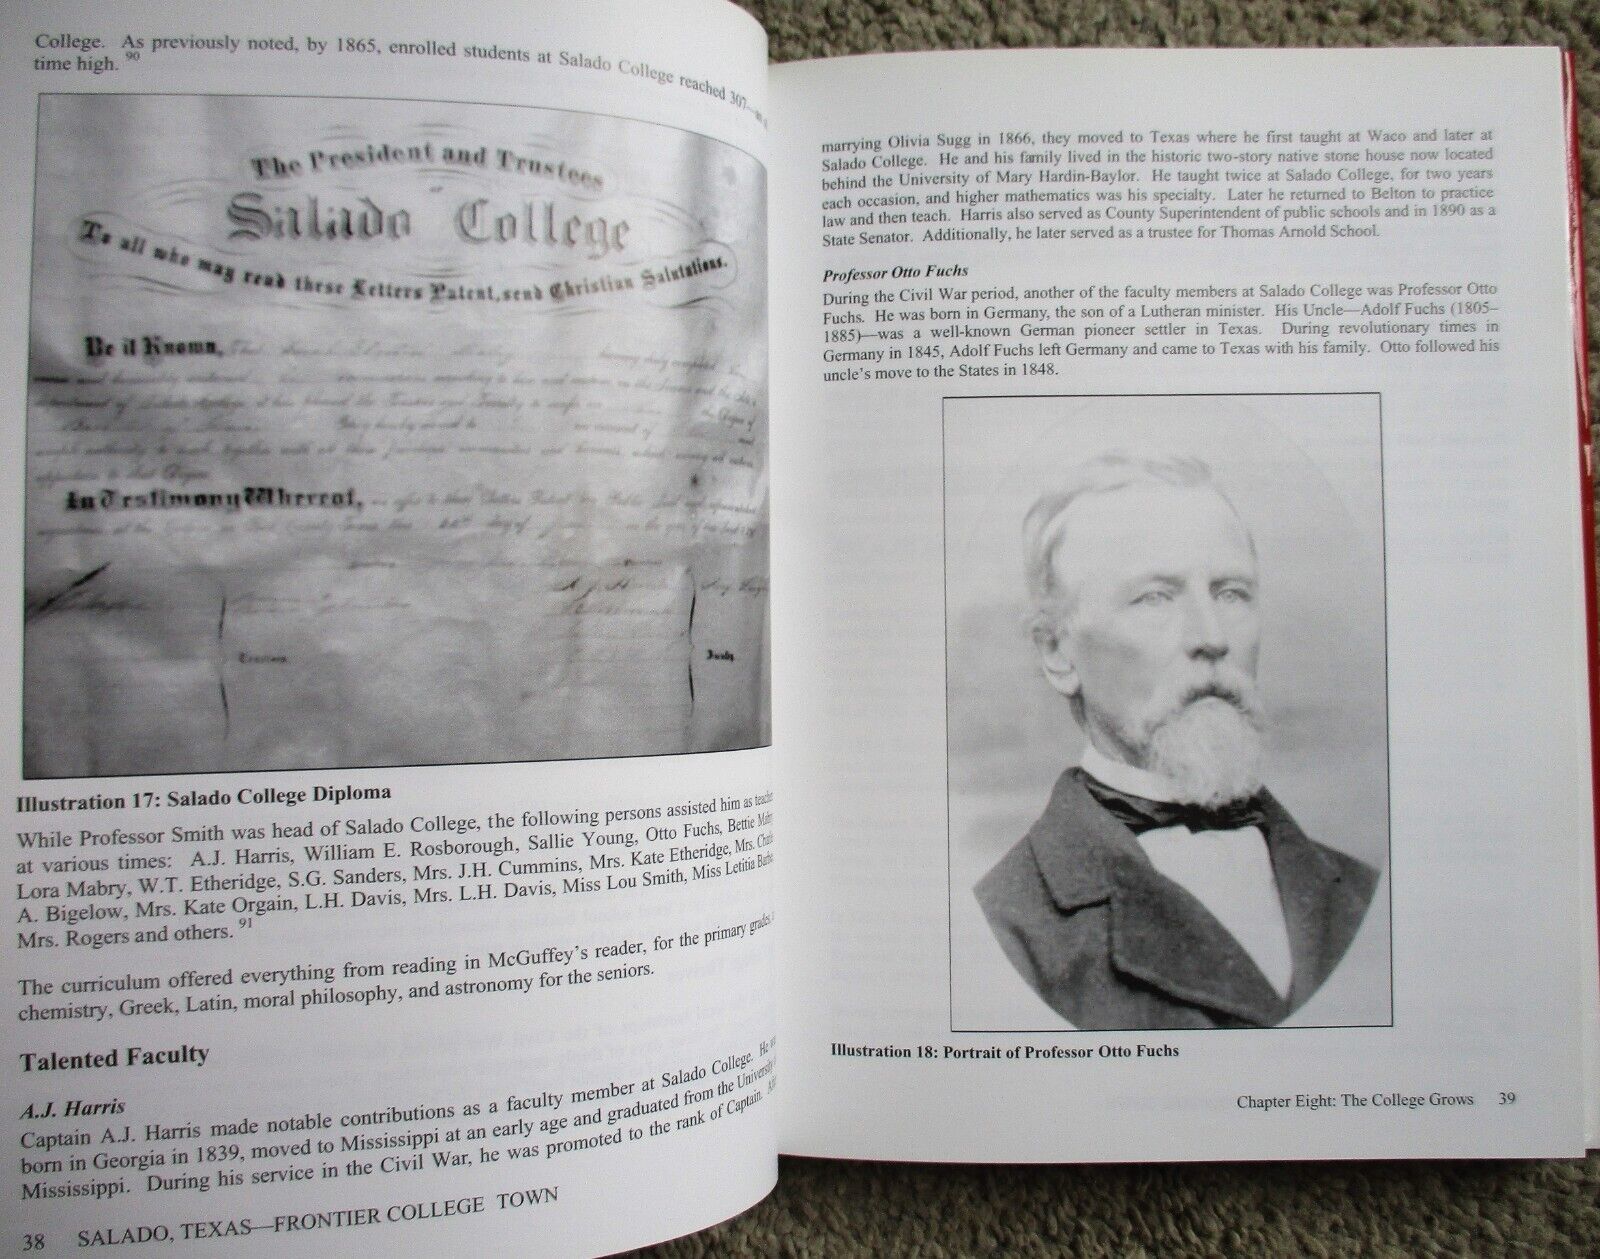 College. As previously noted, by 1865, enrolled students at Salado College reached 307
time high. 90
The President and Trustees
OF
Salado College
To all who may read these Letters Patent, send Christian Salutations.
Be it Known,
In Testimony Whereof,
Trustees.
Faculty
Illustration 17: Salado College Diploma
While Professor Smith was head of Salado College, the following persons assisted him as
at various times: A.J. Harris, William E. Rosborough, Sallie Young, Otto Fuchs, Bettie Mabry
Lora Mabry, W.T. Etheridge, S.G. Sanders, Mrs. J.H. Cummins, Mrs. Kate Etheridge, Mrs.
A. Bigelow, Mrs. Kate Orgain, L.H. Davis, Mrs. L.H. Davis, Miss Lou Smith, Miss Letitia
Mrs. Rogers and others. 91
The curriculum offered everything from reading in McGuffey's reader, for the primary grades,
chemistry, Greek, Latin, moral philosophy, and astronomy for the seniors.
Talented Faculty
A.J. Harris
Captain A.J. Harris made notable contributions as a faculty member at Salado College. He
born in Georgia in 1839, moved to Mississippi at an early age and graduated from the University
Mississippi. During his service in the Civil War, he was promoted to the rank of Captain.
38 SALADO, TEXAS—FRONTIER COLLEGE TOWN
marrying Olivia Sugg in 1866, they moved to Texas where he first taught at Waco and later at
Salado College. He and his family lived in the historic two-story native stone house now located
behind the University of Mary Hardin-Baylor. He taught twice at Salado College, for two years
each occasion, and higher mathematics was his specialty. Later he returned to Belton to practice
law and then teach. Harris also served as County Superintendent of public schools and in 1890 as a
State Senator. Additionally, he later served as a trustee for Thomas Arnold School.
Professor Otto Fuchs
During the Civil War period, another of the faculty members at Salado College was Professor Otto
Fuchs. He was born in Germany, the son of a Lutheran minister. His Uncle—Adolf Fuchs (1805–
1885)—was a well-known German pioneer settler in Texas. During revolutionary times in
Germany in 1845, Adolf Fuchs left Germany and came to Texas with his family. Otto followed his
uncle's move to the States in 1848.
Illustration 18: Portrait of Professor Otto Fuchs
Chapter Eight: The College Grows 39